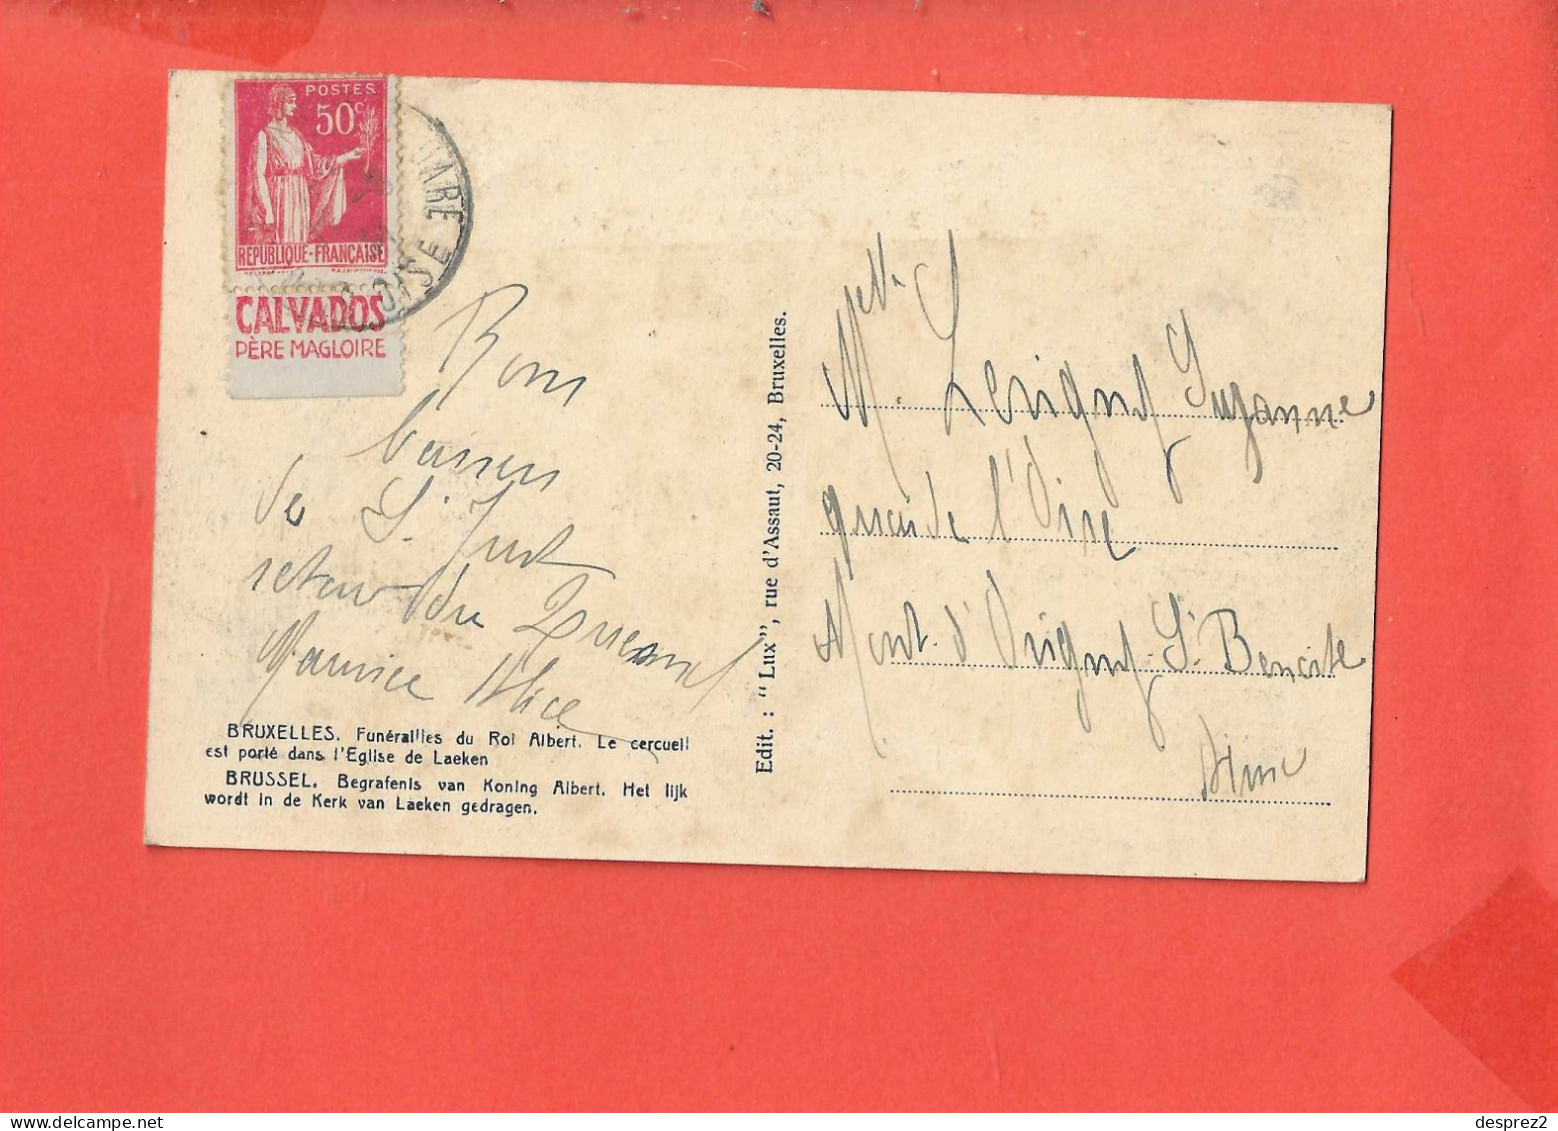 POSTES
50c
REPUBLIQUE-FRANÇAISE
CALVADOS
PÈRE MAGLOIRE
GARE
OISE
Bons
baisers
de St. Just
retour du
Maurice Alice
BRUXELLES. Funérailles du Roi Albert. Le cercueil
est porté dans l'Eglise de Laeken
BRUSSEL. Begrafenis van Koning Albert. Het lijk
wordt in de Kerk van Laeken gedragen.
Edit. : "Lux", rue d'Assaut, 20-24, Bruxelles.
Melle
M. Lerigny Suzanne
quai de l'Oise
Mont d'Origny St Benoite
Aisne
desprez2